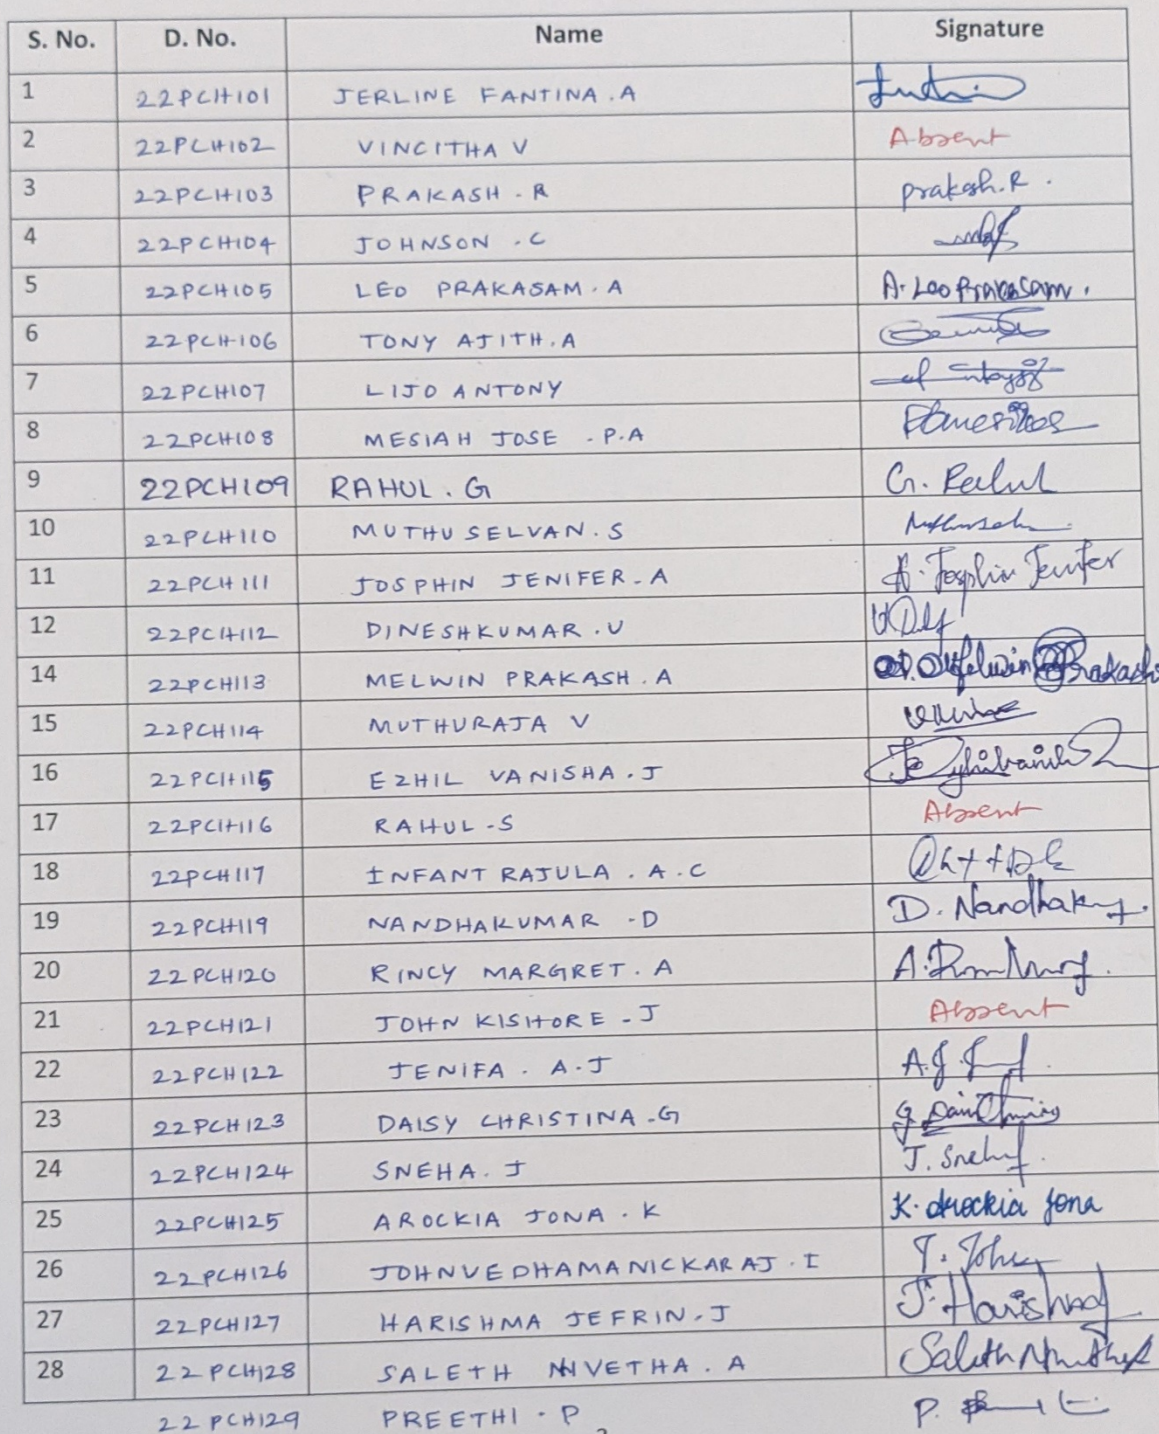 S. No. D. No. Name Signature
1 22PCH101 JERLINE FANTINA . A
2 22PCH102 VINCITHA V Absent
3 22PCH103 PRAKASH . R prakash.R .
4 22PCH104 JOHNSON . C
5 22PCH105 LEO PRAKASAM . A A. Leo Prakasam .
6 22PCH106 TONY AJITH . A
7 22PCH107 LIJO ANTONY
8 22PCH108 MESIAH JOSE . P.A
9 22PCH109 RAHUL . G G. Rahul
10 22PCH110 MUTHU SELVAN . S
11 22PCH111 JOSPHIN JENIFER . A A. Josphin Jenifer
12 22PCH112 DINESHKUMAR . V
14 22PCH113 MELWIN PRAKASH . A Melwin Prakash
15 22PCH114 MUTHURAJA V
16 22PCH115 EZHIL VANISHA . J
17 22PCH116 RAHUL - S Absent
18 22PCH117 INFANT RAJULA . A . C
19 22PCH119 NANDHAKUMAR - D D. Nandhak
20 22PCH120 RINCY MARGRET . A A.
21 22PCH121 JOHN KISHORE - J Absent
22 22PCH122 JENIFA . A . J A.J.
23 22PCH123 DAISY CHRISTINA . G G.
24 22PCH124 SNEHA . J J. Sneha
25 22PCH125 AROCKIA JONA . K K. Arockia Jona
26 22PCH126 JOHNVEDHAMANICKARAJ . I I. John
27 22PCH127 HARISHMA JEFRIN . J J. Harishma
28 22PCH128 SALETH NIVETHA . A Saleth Nivetha
22PCH129 PREETHI . P P.